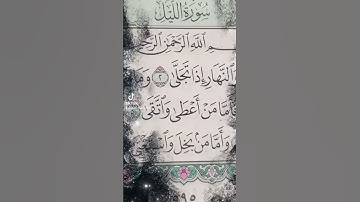 سُورَةُ اللَّيْلِ
ـمِ اللَّهِ الرَّحْمَٰنِ الرَّحِـ
وَالنَّهَارِ إِذَا تَجَلَّىٰ ٢ وَمَا
فَأَمَّا مَنْ أَعْطَىٰ وَاتَّقَىٰ
وَأَمَّا مَنْ بَخِلَ وَاسْتَغْنَىٰ
٥٩٥